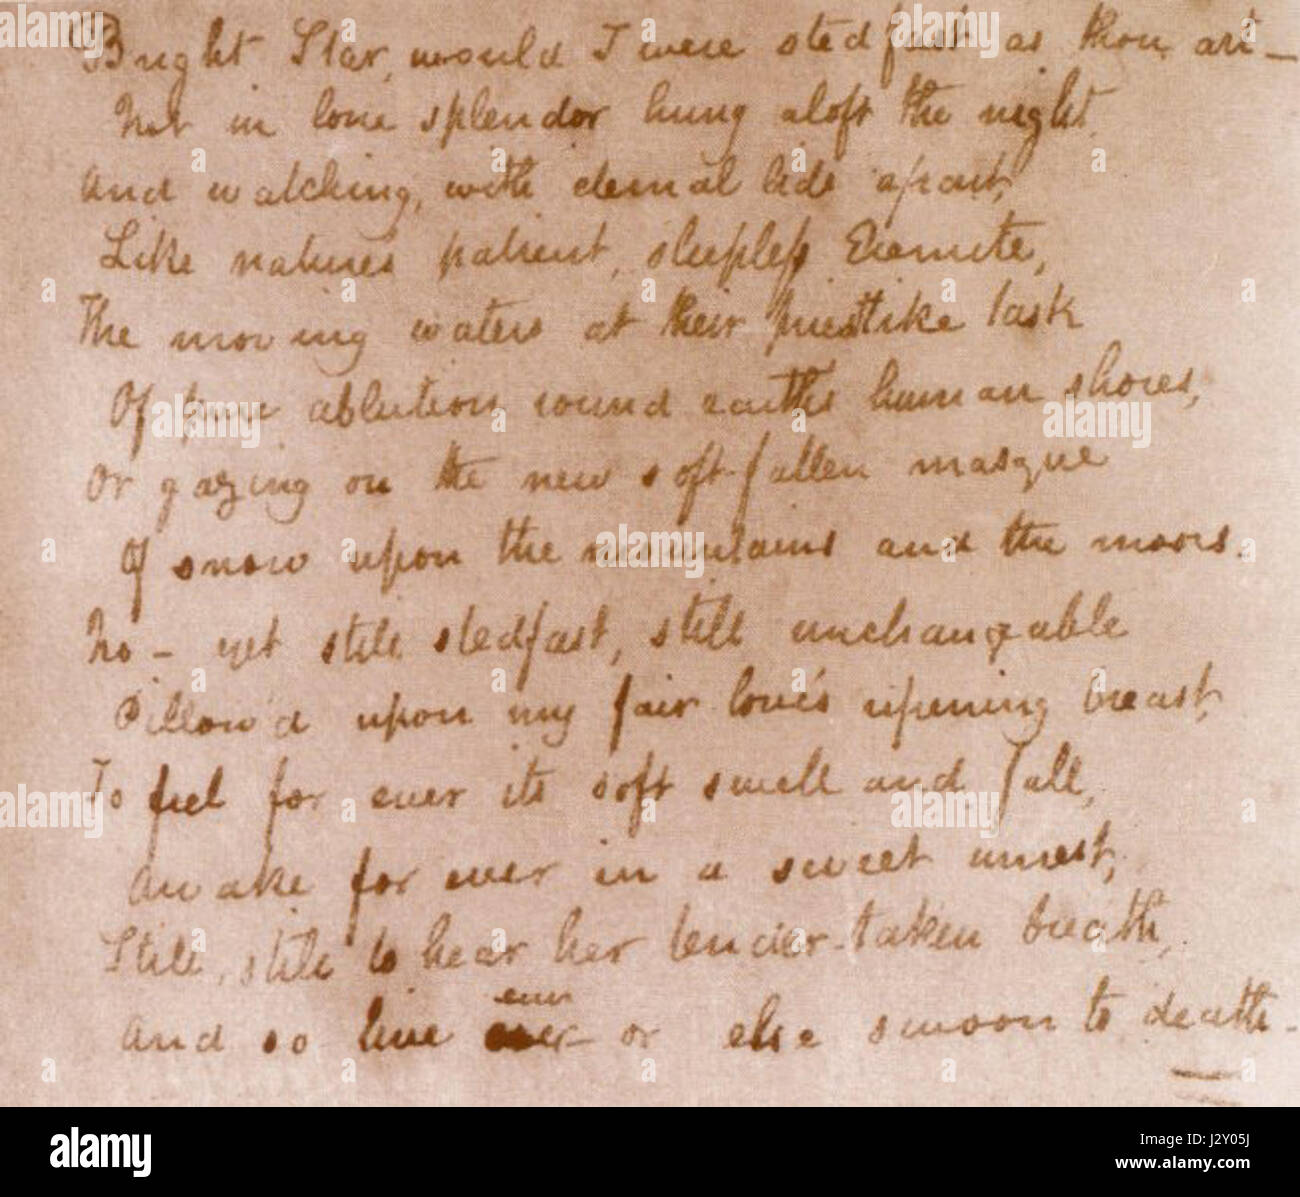 Bright Star, would I were stedfast as thou art—
Not in lone splendor hung aloft the night
And watching, with eternal lids apart,
Like nature's patient, sleepless Eremite,
The moving waters at their priestlike task
Of pure ablution round earth's human shores,
Or gazing on the new soft-fallen masque
Of snow upon the mountains and the moors.
No— yet still stedfast, still unchangeable
Pillow'd upon my fair love's ripening breast,
To feel for ever its soft swell and fall,
Awake for ever in a sweet unrest,
Still, still to hear her tender-taken breath,
ever
And so live ever— or else swoon to death—
alamy
Image ID: J2Y05J
www.alamy.com